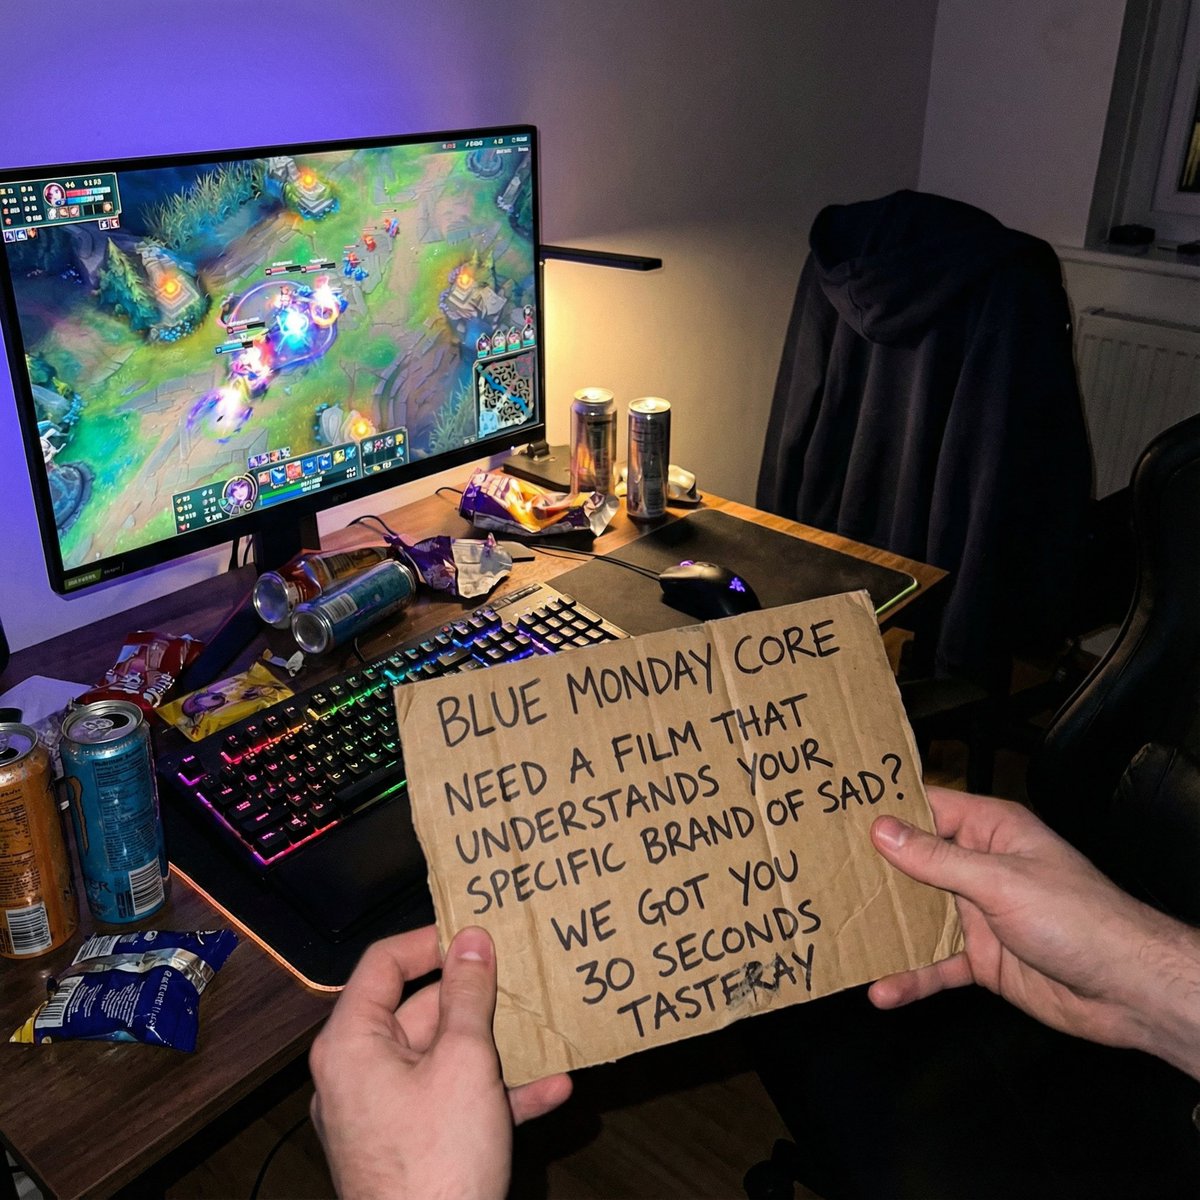 BLUE MONDAY CORE
NEED A FILM THAT
UNDERSTANDS YOUR
SPECIFIC BRAND OF SAD?
WE GOT YOU
30 SECONDS
TASTERAY